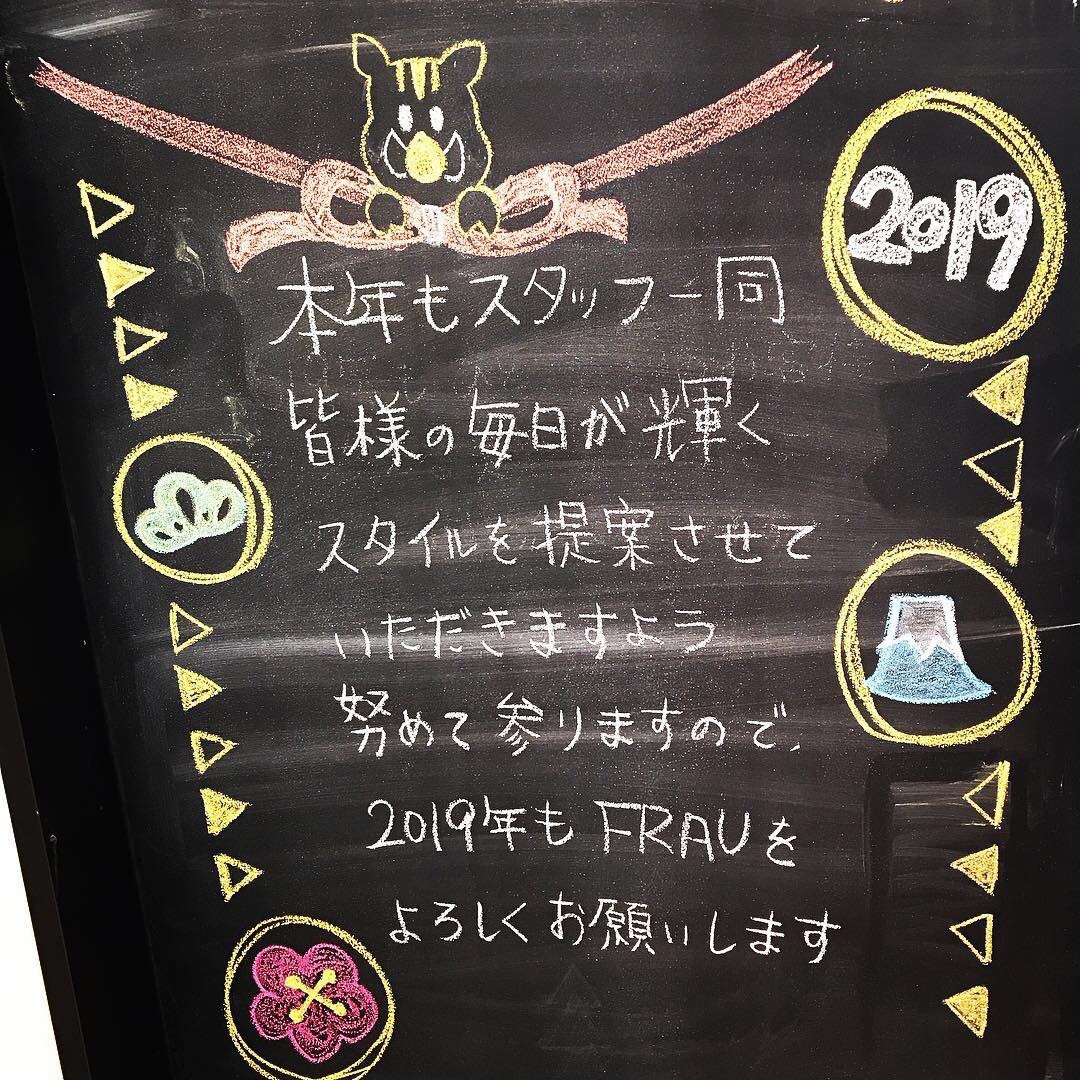 2019
本年もスタッフ一同
皆様の毎日が輝く
スタイルを提案させて
いただきますよう
努めて参りますので、
2019年も FRAUを
よろしくお願いします